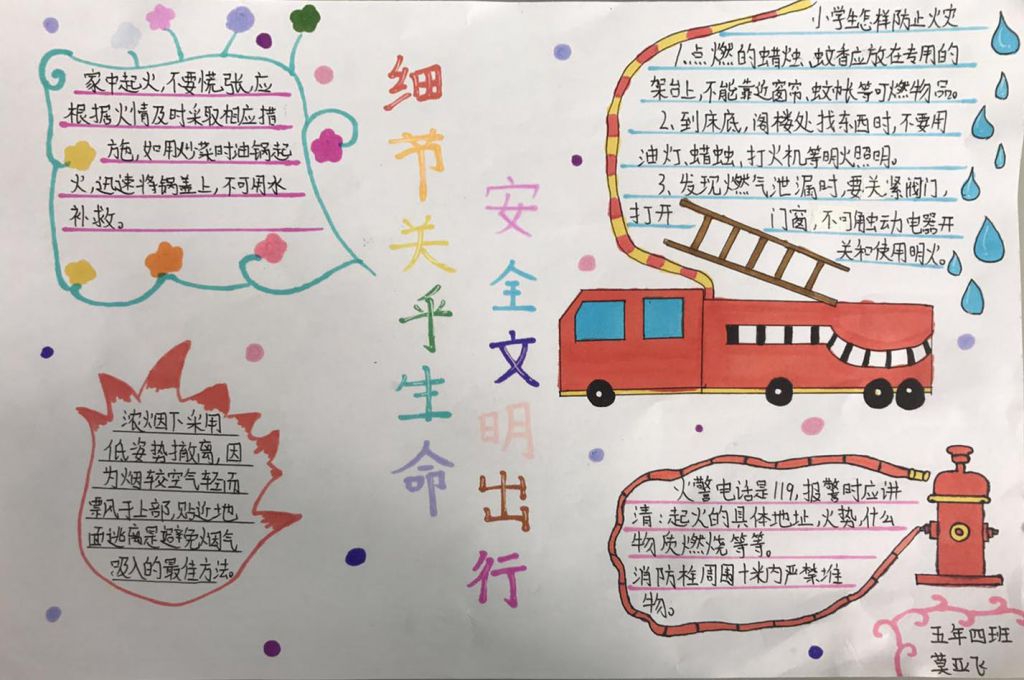 家中起火,不要慌张,应
根据火情及时采取相应措
施,如用炒菜时油锅起
火,迅速将锅盖上,不可用水
补救。
细节关乎生命
安全文明出行
小学生怎样防止火灾
1.点燃的蜡烛、蚊香应放在专用的
架台上,不能靠近窗帘、蚊帐等可燃物品。
2、到床底,阁楼处找东西时,不要用
油灯、蜡烛、打火机等明火照明。
3、发现燃气泄漏时,要关紧阀门,
打开 门窗,不可触动电器开
关和使用明火。
浓烟下采用
低姿势撤离,因
为烟较空气轻而
飘风于上部,贴近地
面逃离是避免烟气
吸入的最佳方法。
火警电话是119,报警时应讲
清:起火的具体地址,火势,什么
物质燃烧等等。
消防栓周围十米内严禁堆
物。
五年四班
莫亚飞